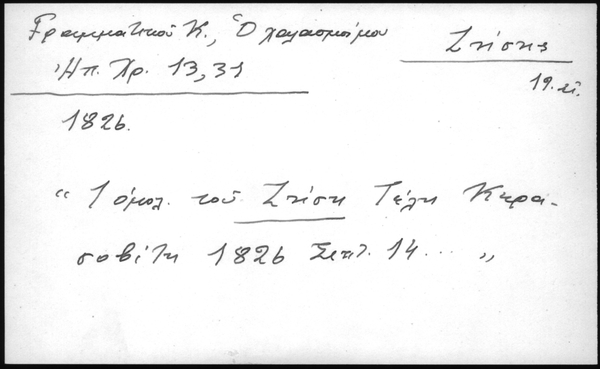 Γραμματικοῦ Κ., Ὁ χαλασμὸς μου
Ζήσης
Ἠπ. Χρ. 13, 31
19. αἰ.
1826.
" 1 ὁμολ. τοῦ Ζήση Τέλη Κερα-
σοβίτη 1826 Σεπτ. 14 ... "